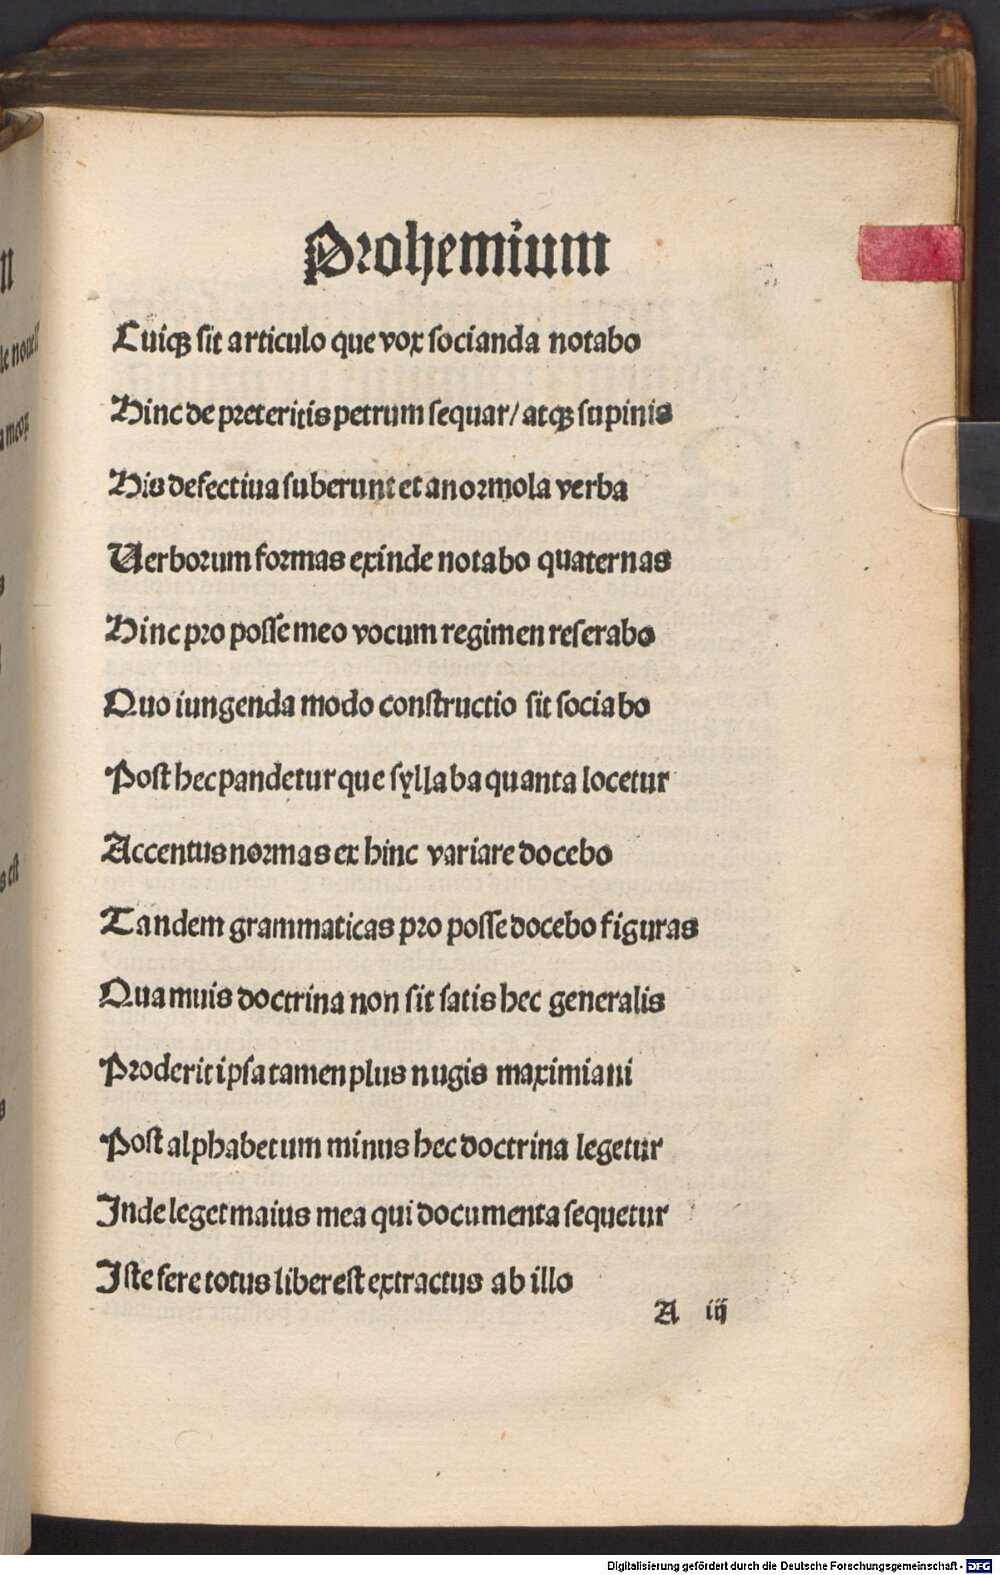 Prohemium
Cuiqꝫ sit articulo que vox socianda notabo
Hinc de preteritis petrum sequar/ atqꝫ supinis
His defectiua suberunt et anormola verba
Uerborum formas exinde notabo quaternas
Hinc pro posse meo vocum regimen reserabo
Quo iungenda modo constructio sit sociabo
Post hec pandetur que syllaba quanta locetur
Accentus normas ex hinc variare docebo
Tandem grammaticas pro posse docebo figuras
Quamuis doctrina non sit satis hec generalis
Proderit ipsa tamen plus nugis maximiani
Post alphabetum minus hec doctrina legetur
Inde leget maius mea qui documenta sequetur
Iste fere totus liber est extractus ab illo
A iij
Digitalisierung gefördert durch die Deutsche Forschungsgemeinschaft - DFG